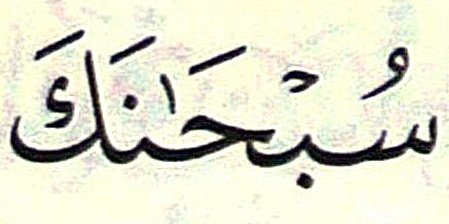 سُبْحَـٰنَكَ